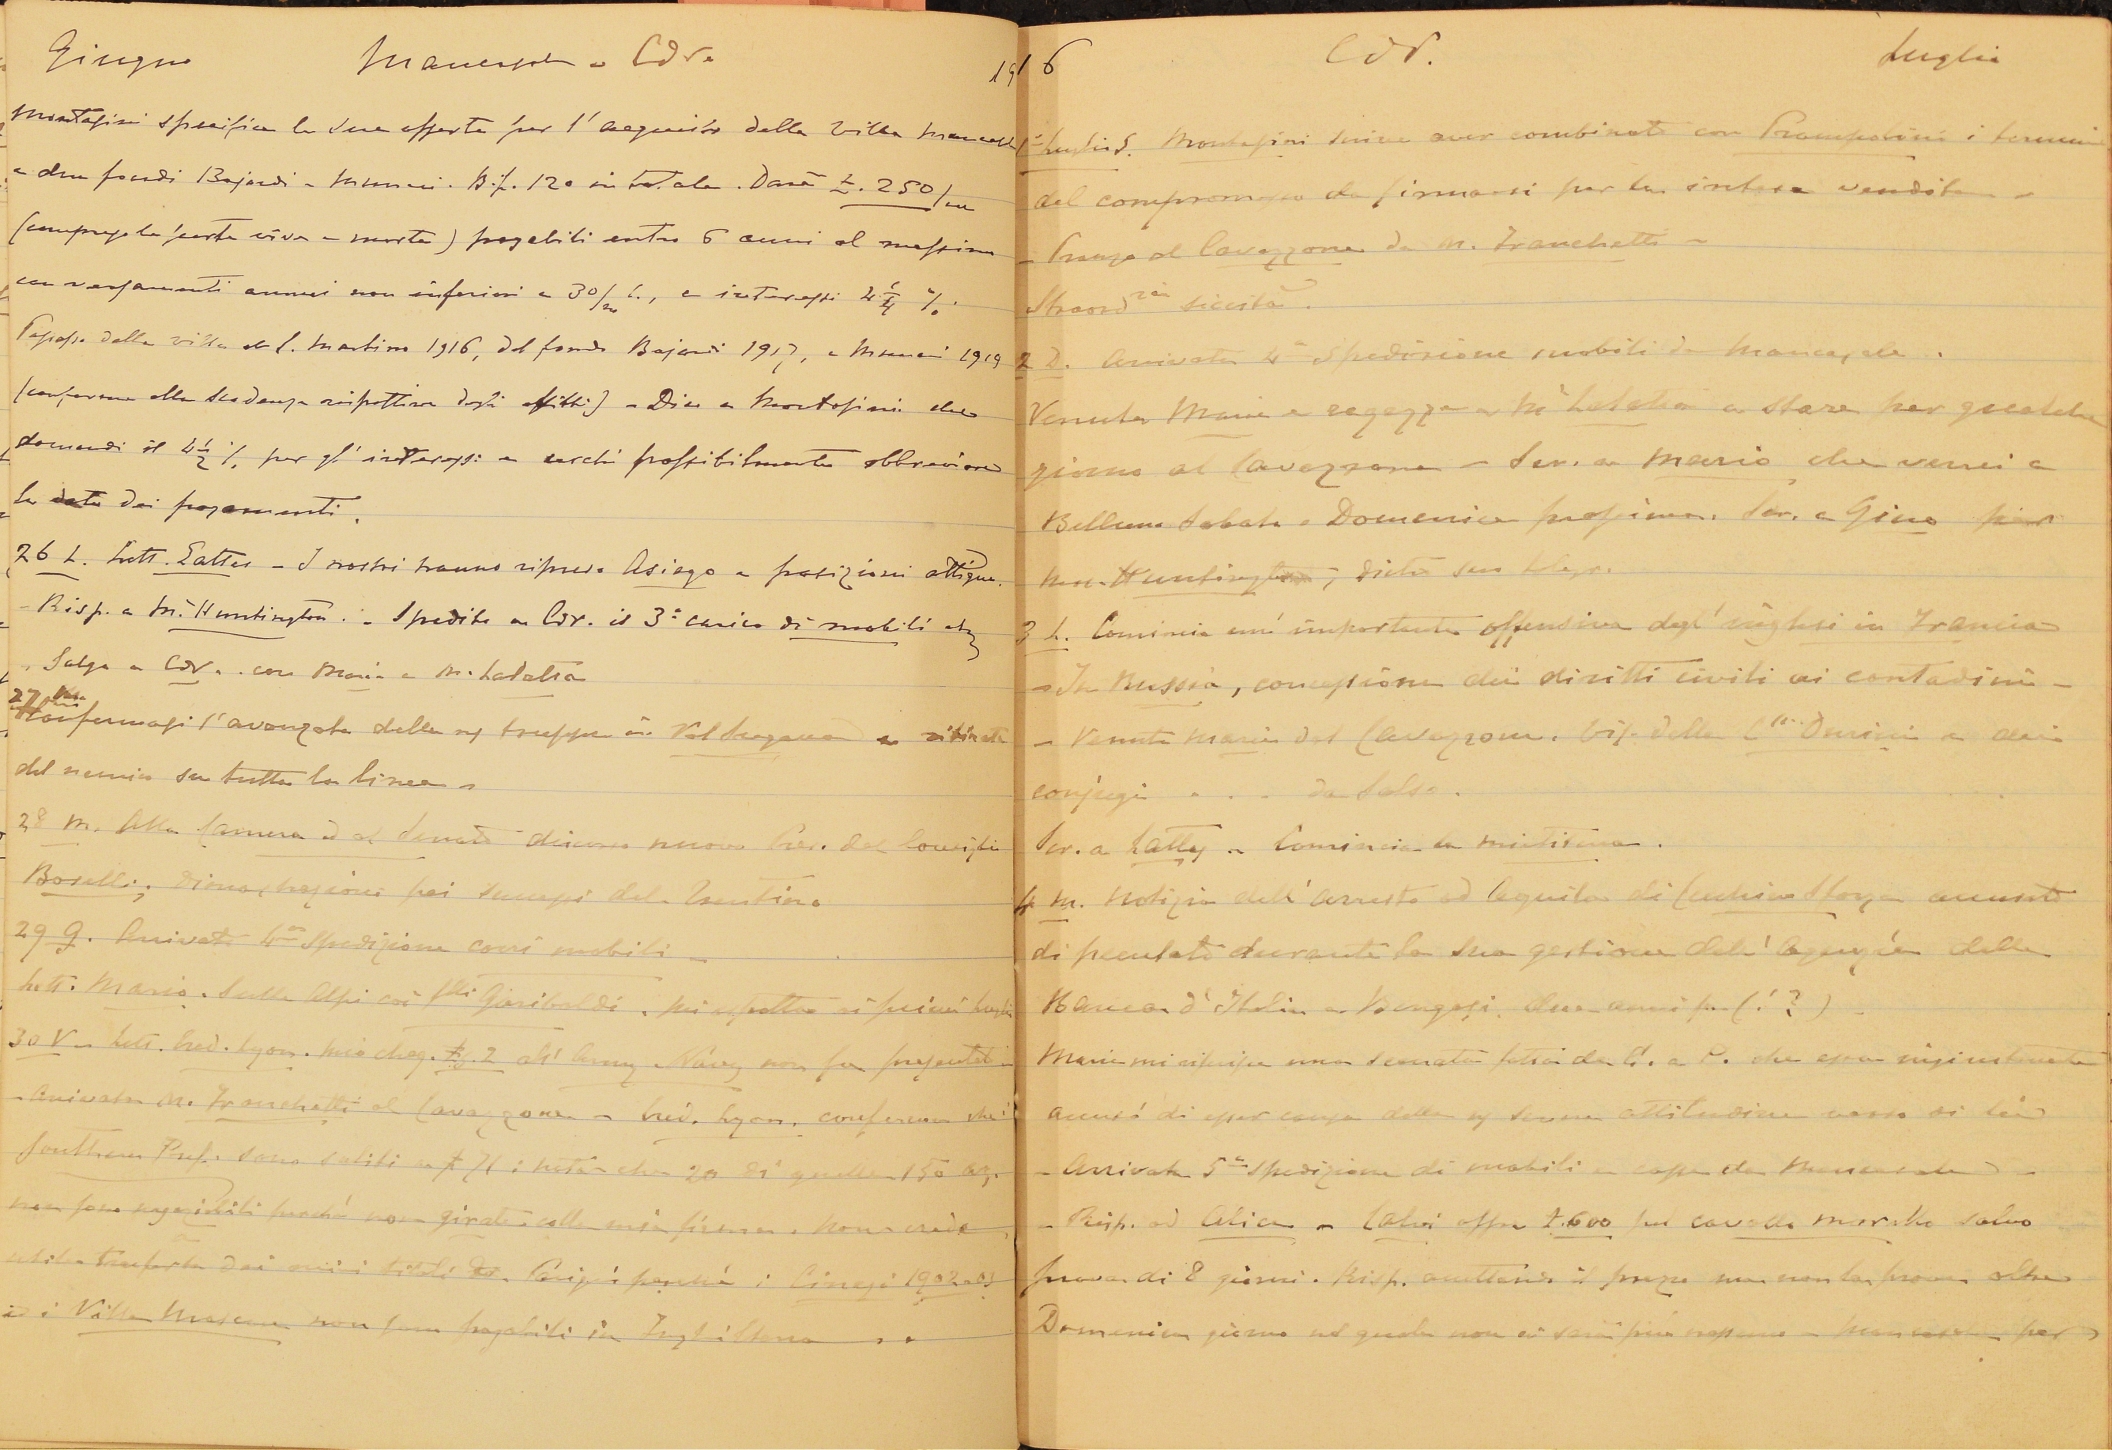 Giugno Mancasale - CdV.
Montasini specifica la sua offerta per l'acquisto della villa Mancasale
e due fondi Bajardi e Munari. B.f. 120 in totale. Darà £. 250/m
(compresa la parte viva e morta) pagabili entro 6 anni al massimo
con versamenti annui non inferiori a 30/m £., e interessi 4 1/4 %.
Possesso della villa al S. Martino 1916, del fondo Bajardi 1917, e Munari 1919
(conforme alla scadenza rispettiva degli affitti) - Dico a Montasini che
domandi il 4 1/2 % per gl'interessi e cerchi possibilmente abbreviare
la data dei pagamenti.
26 L. Lett. Lattes - I nostri hanno ripreso Asiago e posizioni attigue.
- Risp. a Mrs Huntington. - Spedito a CdV. il 3° carico di mobili etc
- Salgo a CdV. con Maria e M. Labatia
27 Mar Confermasi l'avanzata delle ns truppe in Val Sugana e ritirata
del nemico su tutta la linea -
28 M. Alla Camera ed al Senato discorso nuovo Pres. del Consiglio
Boselli; dimostrazioni pei successi del Trentino
29 G. Arrivata 4a spedizione carri mobili -
Lett. Mario. Sulle Alpi coi flli Garibaldi. Mi aspetta ai primi luglio
30 V - Lett. Cred. Lyon. mio cheq. £ 2 all'Army Navy non fu presentato
- Arrivata M. Franchetti al Cavazzone - Cred. Lyon. conferma che i
Southern Pref. sono saliti a £ 71; nota che 20 di quelle 150 az.
non sono negoziabili perché non girate colla mia firma. Non crede
utile trasferta dei miei titoli da Parigi perché i Cinesi 1902-03
ed i Ville Moscou non sono pagabili in Inghilterra -

1916 CdV. Luglio
1° Luglio S. Montasini scrive aver combinato con Prampolini i termini
del compromesso da firmarsi per la intesa vendita -
- Pranzo al Cavazzone da M. Franchetti -
Straordria siccità.
2 D. Arrivata 4a spedizione mobili da Mancasale.
Venuta Maria e ragazza e Ma Labatia a stare per qualche
giorno al Cavazzone - Scr. a Mario che verrei a
Belluno Sabato o Domenica prossima. Scr. a Gino per
Mrs. Huntington, dietro suo telegr.
3 L. Comincia un'importante offensiva degl'inglesi in Francia
- In Russia, concessione dei diritti civili ai contadini -
- Venuta Maria dal Cavazzone. Vis. della Ctssa Durini e dei
conjugi . . . da Salso.
Scr. a Lattes - Comincia la mietitura.
4 M. Notizia dell'arresto ad Aquila di Cecchino Sforza accusato
di peculato durante la sua gestione dell'Agenzia della
Banca d'Italia a Bengasi, due anni fa (!?)
Maria mi riferisce una scenata fattai da C. a P. che essa ingiustamente
accusò di esser causa della ns severa attitudine verso di lei
- Arrivata 5a spedizione di mobili e casse da Mancasale -
- Risp. ad Alice - Calvi offre £.600 pel cavallo morello salvo
prova di 8 giorni. Risp. accettando il prezzo ma non la prova oltre
Domenica giorno nel quale non ci sarà più nessuno a Mancasale per